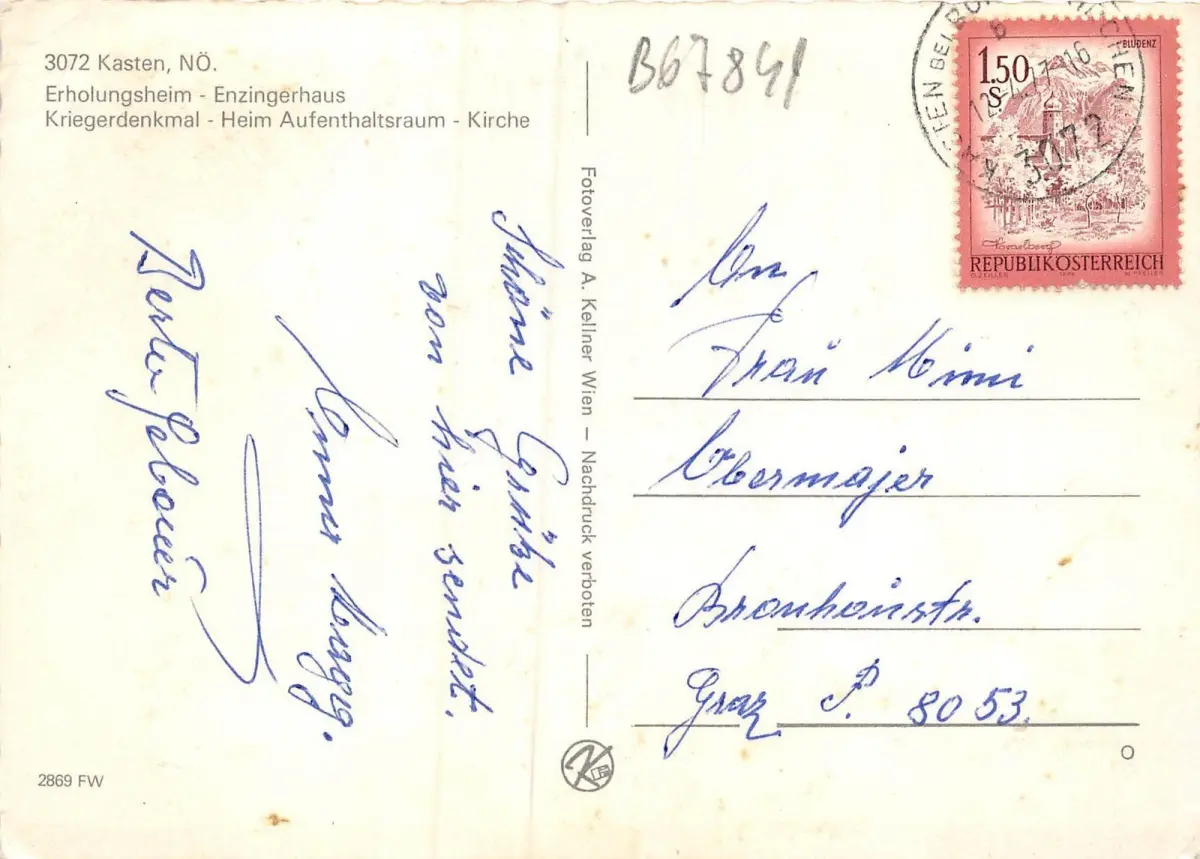 3072 Kasten, NÖ.
Erholungsheim - Enzingerhaus
Kriegerdenkmal - Heim Aufenthaltsraum - Kirche
B67841
KASTEN BEI BÖ
3072
BLUDENZ
1.50
S
Vorarlberg
REPUBLIK ÖSTERREICH
Fotoverlag A. Kellner Wien – Nachdruck verboten
Schöne Grüße
von hier sendet.
Anna
Berta Gebauer
An
Frau Mimi
Obermajer
Brauhausstr.
Graz P. 8053.
2869 FW
K
O